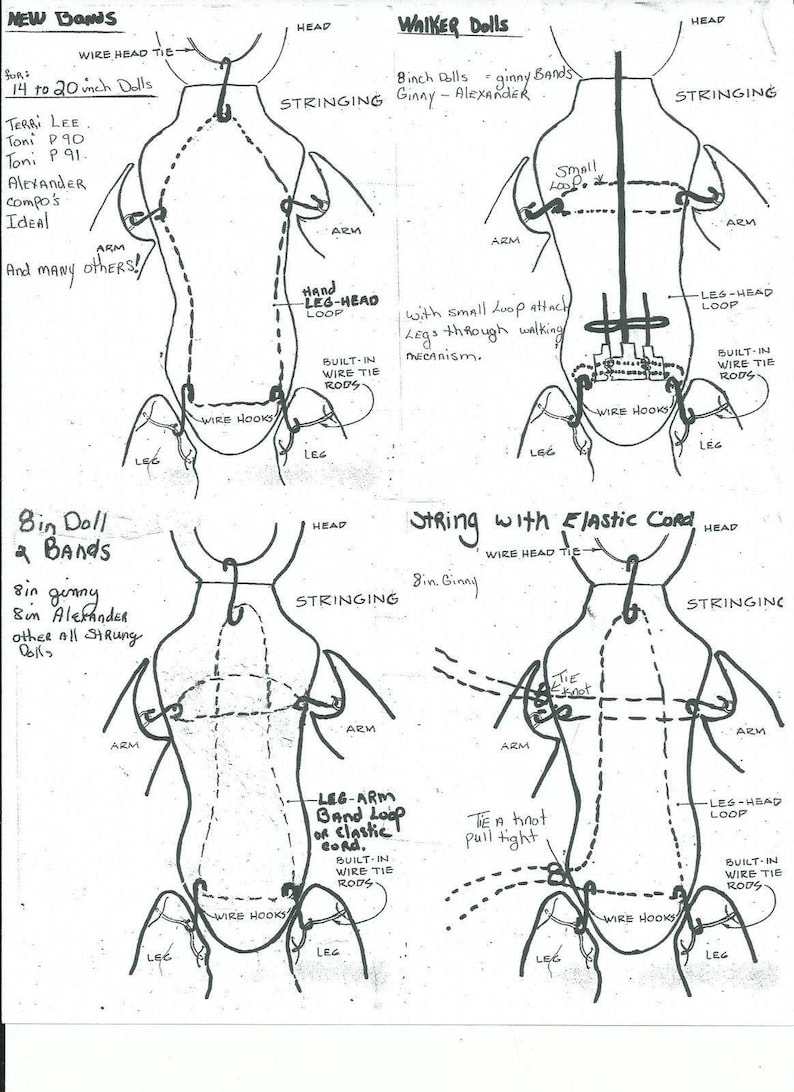 NEW BANDS
HEAD
WIRE HEAD TIE
FOR:
14 to 20 inch Dolls
STRINGING
TERRI LEE
Toni P 90
Toni P 91.
ALEXANDER
COMPO'S
IDEAL
ARM
ARM
AND MANY OTHERS!
Hand
LEG-HEAD
LOOP
BUILT-IN
WIRE TIE
RODS
WIRE HOOKS
LEG
LEG
WALKER Dolls
HEAD
8 inch Dolls = ginny BANDS
GINNY - ALEXANDER
STRINGING
SMALL
LOOP
ARM
ARM
LEG-HEAD
LOOP
With SMALL LOOP ATTACH
LEGS through walking
MECANISM.
BUILT-IN
WIRE TIE
RODS
WIRE HOOKS
LEG
LEG
8 in Doll
2 BANDS
HEAD
8in ginny
8in ALEXANDER
other All STRUNG
Dolls
STRINGING
ARM
ARM
LEG-ARM
BAND LOOP
OR ELASTIC
CORD.
BUILT-IN
WIRE TIE
RODS
WIRE HOOKS
LEG
LEG
STRING WITH ELASTIC CORD
HEAD
WIRE HEAD TIE
8in. Ginny
STRINGING
TIE
KNOT
ARM
ARM
LEG-HEAD
LOOP
TIE A KNOT
pull tight
BUILT-IN
WIRE TIE
RODS
WIRE HOOKS
LEG
LEG